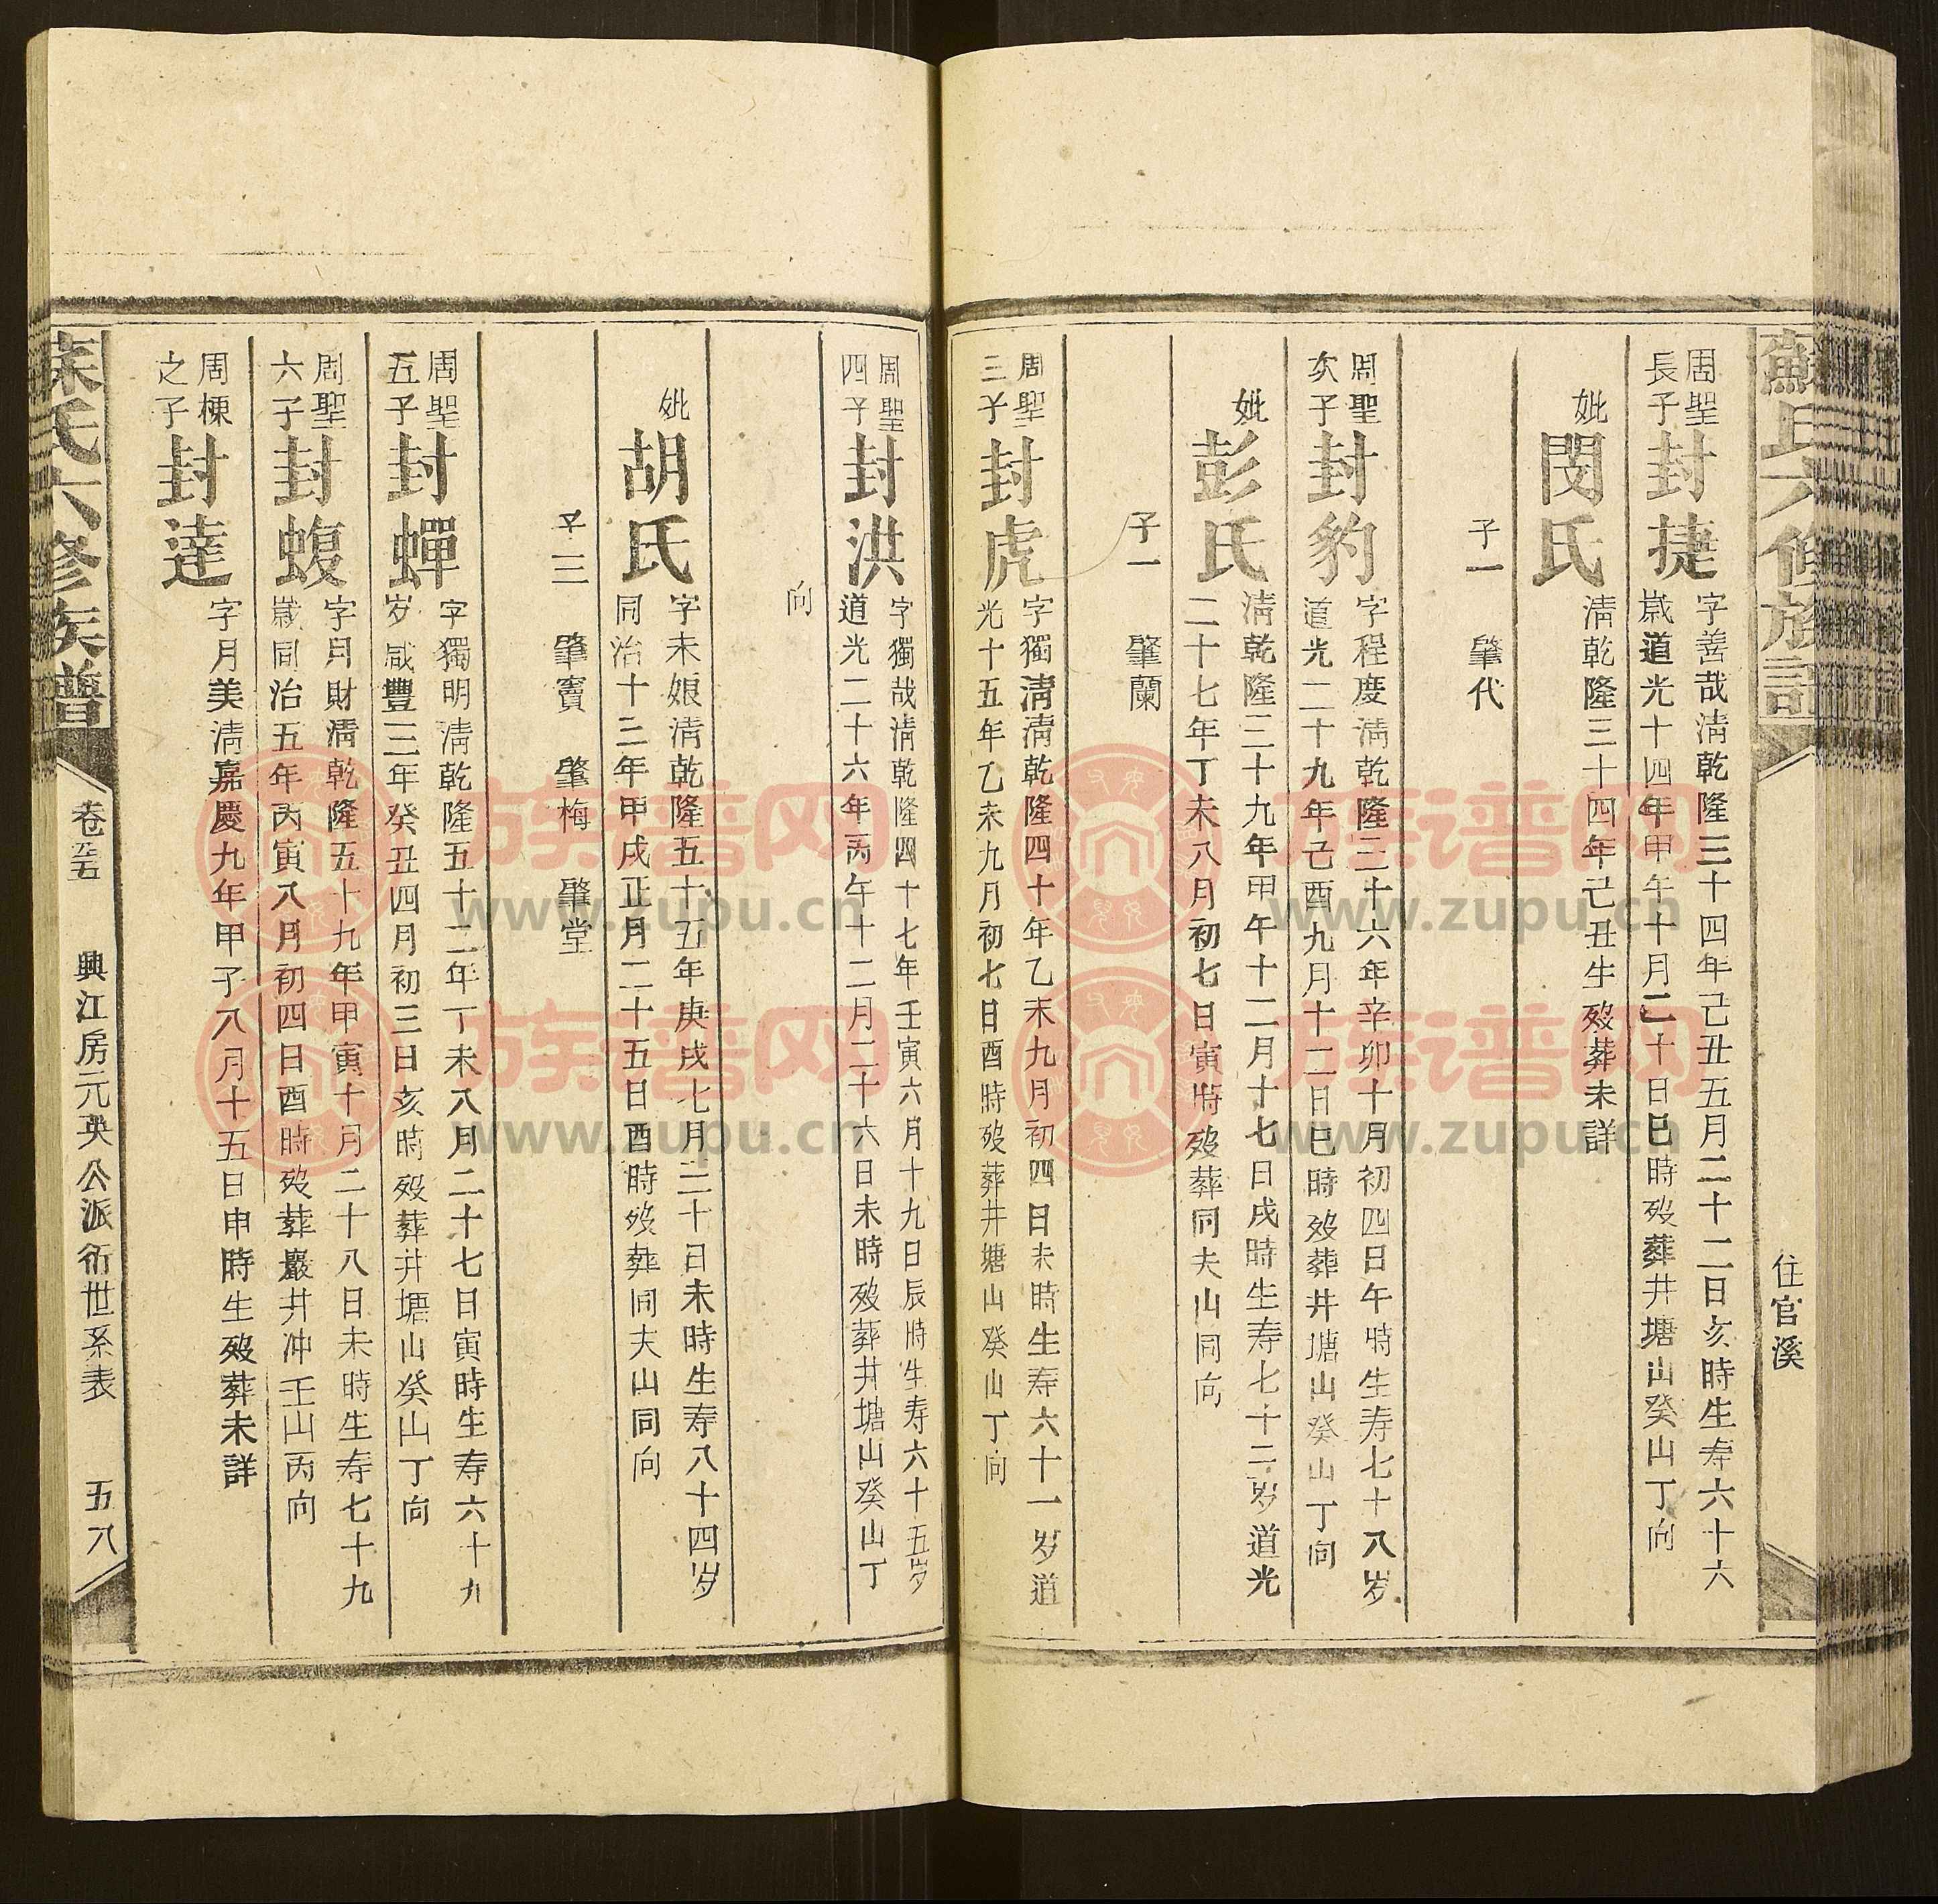 蘇氏六修族譜
住官溪
周聖
長子
封捷
字善哉清乾隆三十四年己丑五月二十二日亥時生寿六十六
歲道光十四年甲午十月二十日巳時歿葬井塘山癸山丁向
妣
閔氏
清乾隆三十四年己丑生歿葬未詳
子一　肇代
周聖
次子
封豹
字程度清乾隆三十六年辛卯十月初四日午時生寿七十八岁
道光二十九年己酉九月十二日巳時歿葬井塘山癸山丁向
妣
彭氏
清乾隆三十九年甲午十二月十七日戌時生寿七十二岁道光
二十七年丁未八月初七日寅時歿葬同夫山同向
子一　肇蘭
周聖
三子
封虎
字獨清清乾隆四十年乙未九月初四日未時生寿六十一岁道
光十五年乙未九月初七日酉時歿葬井塘山癸山丁向
周聖
四子
封洪
字獨哉清乾隆四十七年壬寅六月十九日辰時生寿六十五岁
道光二十六年丙午十二月二十六日未時歿葬井塘山癸山丁
向
妣
胡氏
字未娘清乾隆五十五年庚戌七月二十日未時生寿八十四岁
同治十三年甲戌正月二十五日酉時歿葬同夫山同向
子三　肇寶　肇梅　肇堂
周聖
五子
封蟬
字獨明清乾隆五十二年丁未八月二十七日寅時生寿六十九
岁咸豐三年癸丑四月初三日亥時歿葬井塘山癸山丁向
周聖
六子
封蝮
字月財清乾隆五十九年甲寅十月二十八日未時生寿七十九
歲同治五年丙寅八月初四日酉時歿葬巖井冲壬山丙向
周棟
之子
封達
字月美清嘉慶九年甲子八月十五日申時生歿葬未詳
蘇氏六修族譜
興江房元英公派衍世系表
五八
族谱网
www.zupu.cn
族谱网
www.zupu.cn
族谱网
www.zupu.cn
族谱网
www.zupu.cn